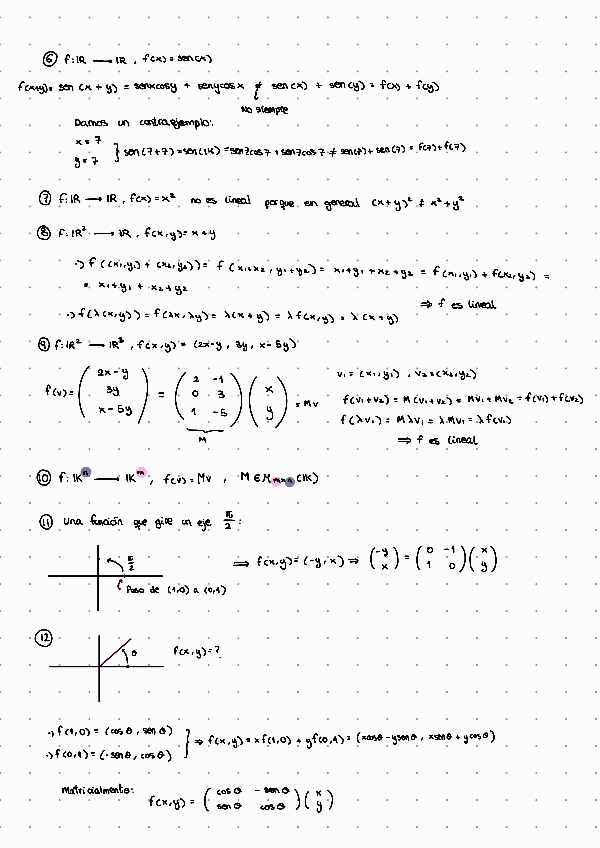 ⑥ f: ℝ ⟶ ℝ , f(x) = sen(x)
f(x+y) = sen (x + y) = senxcosy + senycosx ≠ sen(x) + sen(y) = f(x) + f(y)
No siempre
Damos un contraejemplo:
x = 7
y = 7 } sen(7+7) = sen(14) = sen7cos7 + sen7cos7 ≠ sen(7) + sen(7) = f(7) + f(7)
⑦ f: ℝ ⟶ ℝ , f(x) = x² no es lineal porque en general (x + y)² ≠ x² + y²
⑧ f: ℝ² ⟶ ℝ , f(x,y) = x + y
·) f((x₁,y₁) + (x₂,y₂)) = f(x₁+x₂, y₁+y₂) = x₁+y₁ + x₂+y₂ = f(x₁,y₁) + f(x₂,y₂) =
= x₁+y₁ + x₂+y₂
⇒ f es lineal
·) f(λ(x,y)) = f(λx, λy) = λ(x+y) = λf(x,y) = λ(x+y)
⑨ f: ℝ² ⟶ ℝ³, f(x,y) = (2x-y, 3y, x-5y)
f(v) = (2x-y 3y x-5y) = (2 -1 0 3 1 -5) (x y) = Mv
M
v₁ = (x₁,y₁) , v₂ = (x₂,y₂)
f(v₁+v₂) = M(v₁+v₂) = Mv₁ + Mv₂ = f(v₁) + f(v₂)
f(λv₁) = Mλv₁ = λMv₁ = λf(v₁)
⇒ f es lineal
⑩ f: 𝕂ⁿ ⟶ 𝕂ᵐ, f(v) = Mv , M ∈ M_{m×n}(𝕂)
⑪ Una función que gire un eje π/2 :
π/2
Paso de (1,0) a (0,1)
⟹ f(x,y) = (-y,x) ⇒ (-y x) = (0 -1 1 0) (x y)
⑫
θ
f(x,y) = ?
·) f(1,0) = (cosθ, senθ)
·) f(0,1) = (-senθ, cosθ) } ⇒ f(x,y) = xf(1,0) + yf(0,1) = (xcosθ - ysenθ, xsenθ + ycosθ)
Matricialmente:
f(x,y) = (cosθ -senθ senθ cosθ) (x y)